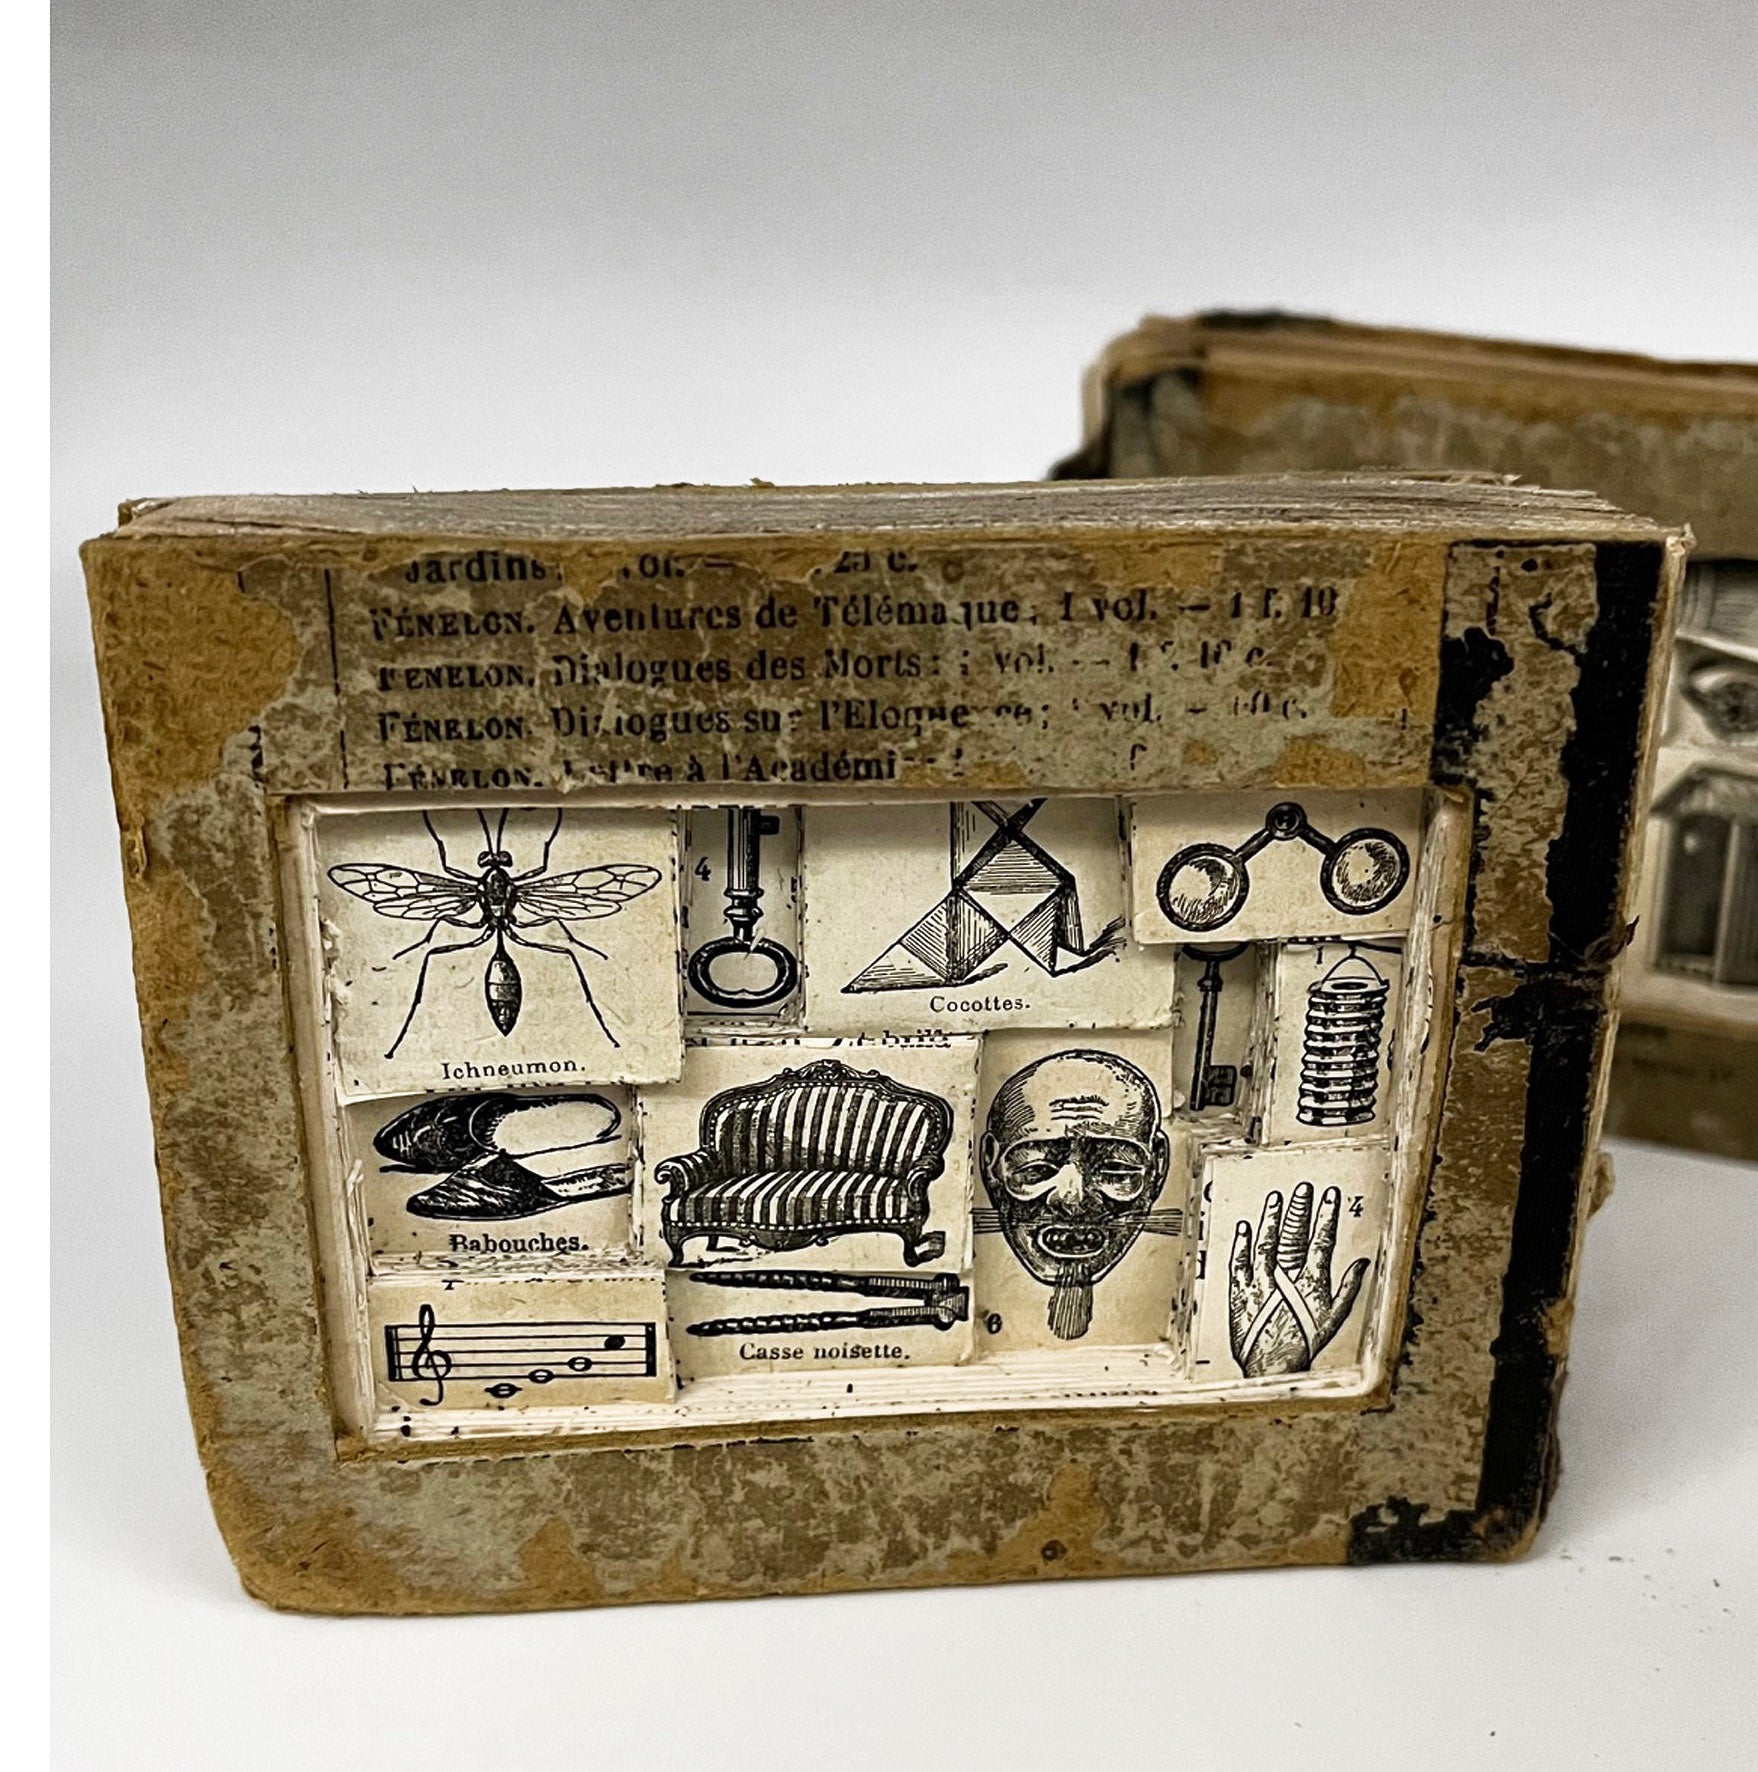 Jardins
FÉNELON. Aventures de Télémaque; 1 vol. — 1 f. 10
FÉNELON. Dialogues des Morts; 1 vol. — 1 f. 10 c.
FÉNELON. Dialogues sur l'Eloquence; vol. —
FÉNELON. Lettre à l'Académi
4
Cocottes.
1
Ichneumon.
Babouches.
4
6
Casse noisette.